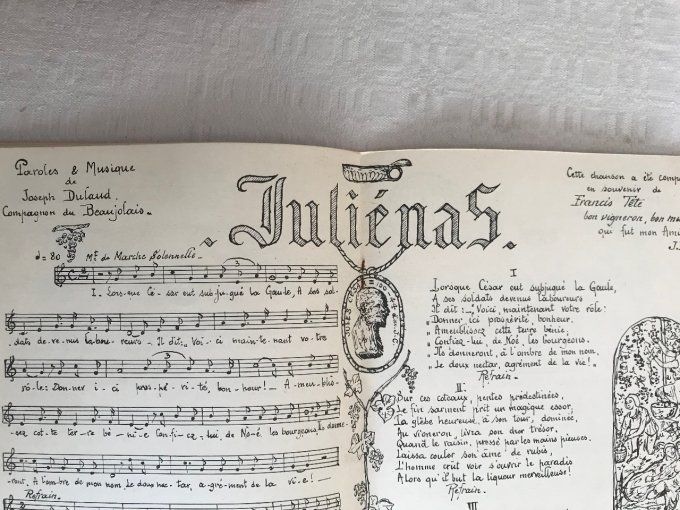 Paroles & Musique
de
Joseph Dulaud
Compagnon du Beaujolais
Juliénas
Cette chanson a été comp
en souvenir de
Francis Tête
bon vigneron, bon mu
qui fut mon Ami
J.
♩= 80 Mt de Marche Solennelle
I. Lors-que Cé-sar eut sub-ju-gué la Gau-le, A ses sol-
dats de-ve-nus la-bou-reurs Il dit: Voi-ci main-te-nant vo-tre
rô-le: Don-ner i-ci pros-pé-ri-té, bon-heur! A-meu-blis-
sez cet-te ter-re bé-ni-e Con-fi-ez-lui, de No-é, les bourgeons. Ils donne-
ront, A l'om-bre de mon nom, Le doux nec-tar, a-gré-ment de la vi-e!
Refrain.
JULES CÉSAR
I
Lorsque César eut subjugué la Gaule,
A ses soldats devenus laboureurs
Il dit: "Voici, maintenant votre rôle:
"Donner ici prospérité, bonheur.
"Ameublissez cette terre bénie,
"Confiez-lui, de Noé, les bourgeons.
"Ils donneront, à l'ombre de mon nom,
"Le doux nectar, agrément de la vie!"
Refrain.
II
Sur ces coteaux, pentes prédestinées,
Le fin sarment prit un magique essor,
La glèbe heureuse, à son tour, dominée,
Au vigneron, livra son cher trésor,
Quand le raisin, pressé par les mains pieuses,
Laissa couler son âme de rubis,
L'homme crut voir s'ouvrir le paradis
Alors qu'il but la liqueur merveilleuse!
Refrain.
III